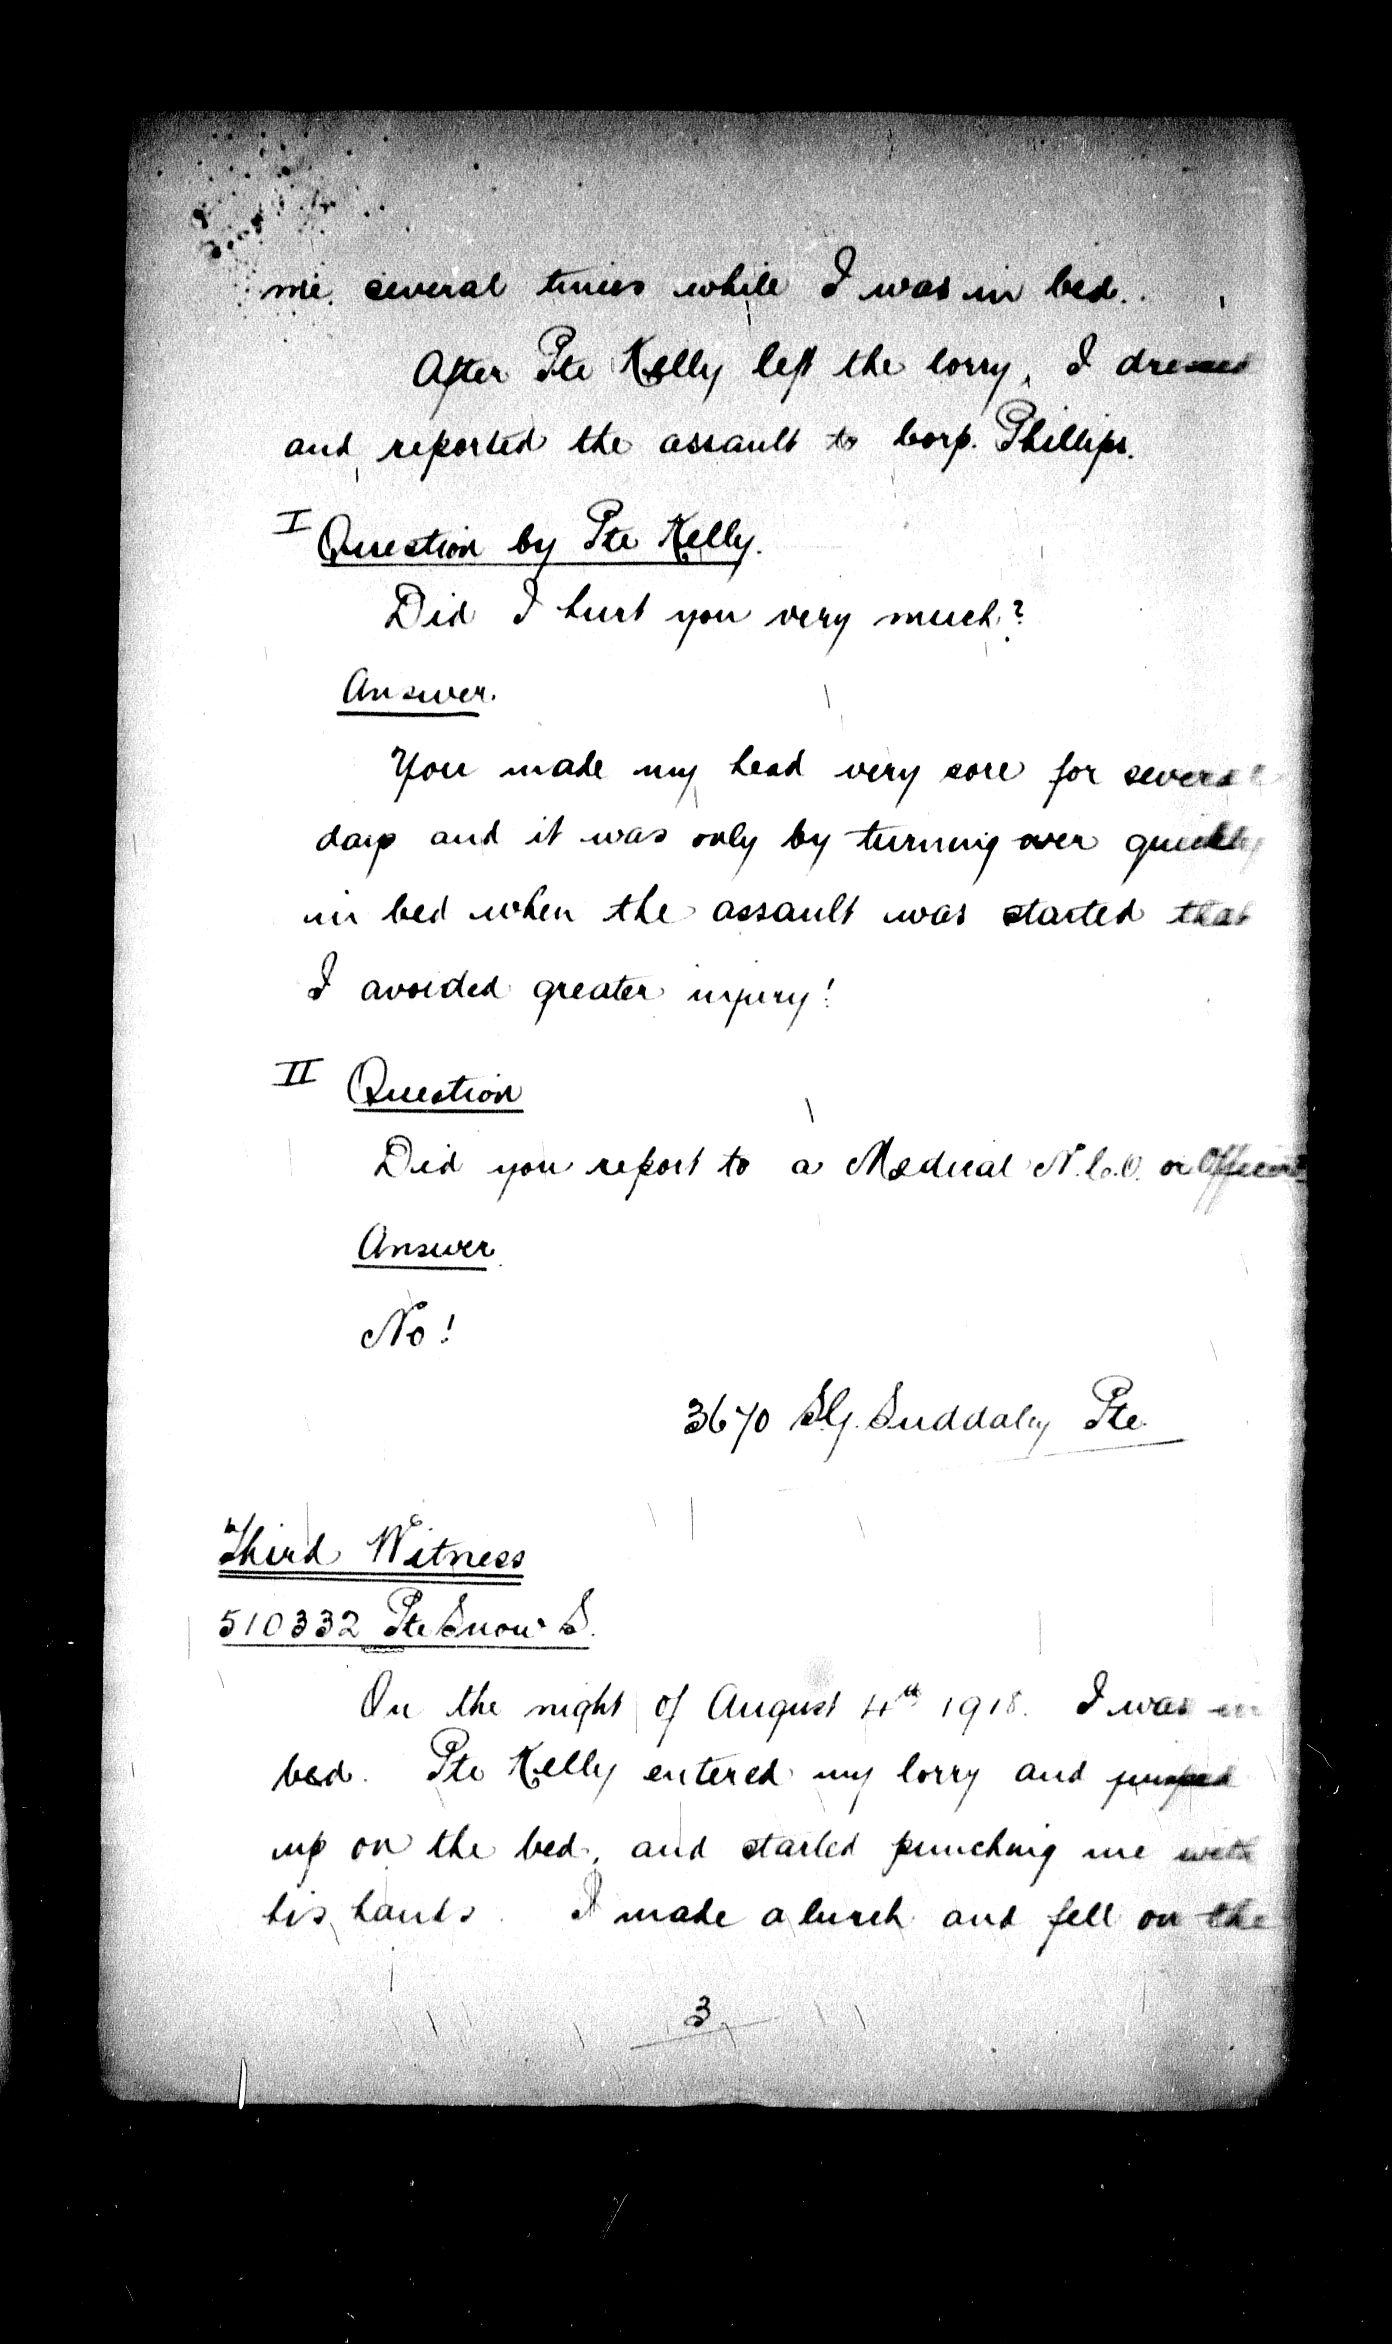 me several times while I was in bed.
After Pte Kelly left the lorry, I dressed
and reported the assault to Corp. Phillips.
I Question by Pte Kelly.
Did I hurt you very much?
Answer.
You made my head very sore for several
days and it was only by turning over quickly
in bed when the assault was started that
I avoided greater injury!
II Question
Did you report to a Medical N.C.O. or Officer?
Answer
No!
3670 S.G. Suddaby Pte
Third Witness
510332 Pte Snow S.
On the night of August 4th 1918. I was in
bed. Pte Kelly entered my lorry and jumped
up on the bed, and started punching me with
his hands. I made a lurch and fell on the
3